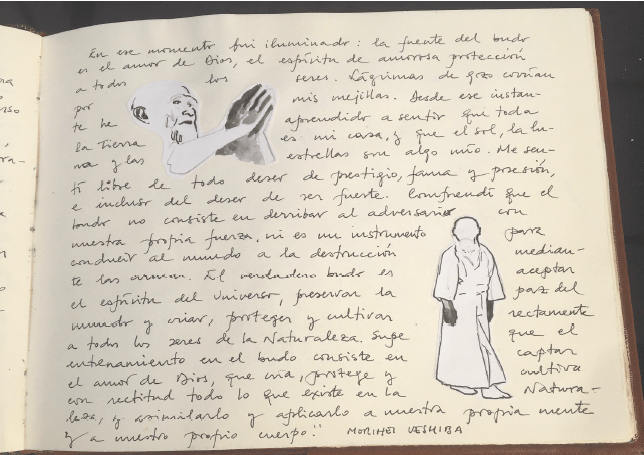 En ese momento fui iluminado: la fuente del budo
es el amor de Dios, el espíritu de amorosa protección
a todos los seres. Lágrimas de gozo corrían
por mis mejillas. Desde ese instan-
te he aprendido a sentir que toda
la Tierra es mi casa, y que el sol, la lu-
na y las estrellas son algo mío. Me sen-
tí libre de todo deseo de prestigio, fama y posesión,
e incluso del deseo de ser fuerte. Comprendí que el
budo no consiste en derribar al adversario con
nuestra propia fuerza, ni es un instrumento para
conducir al mundo a la destrucción median-
te las armas. El verdadero budo es aceptar
el espíritu del Universo, preservar la paz del
mundo y criar, proteger y cultivar rectamente
a todos los seres de la Naturaleza. Supe que el
entrenamiento en el budo consiste en captar
el amor de Dios, que cría, protege y cultiva
con rectitud todo lo que existe en la Natura-
leza, y asimilarlo y aplicarlo a nuestra propia mente
y a nuestro propio cuerpo." MORIHEI UESHIBA